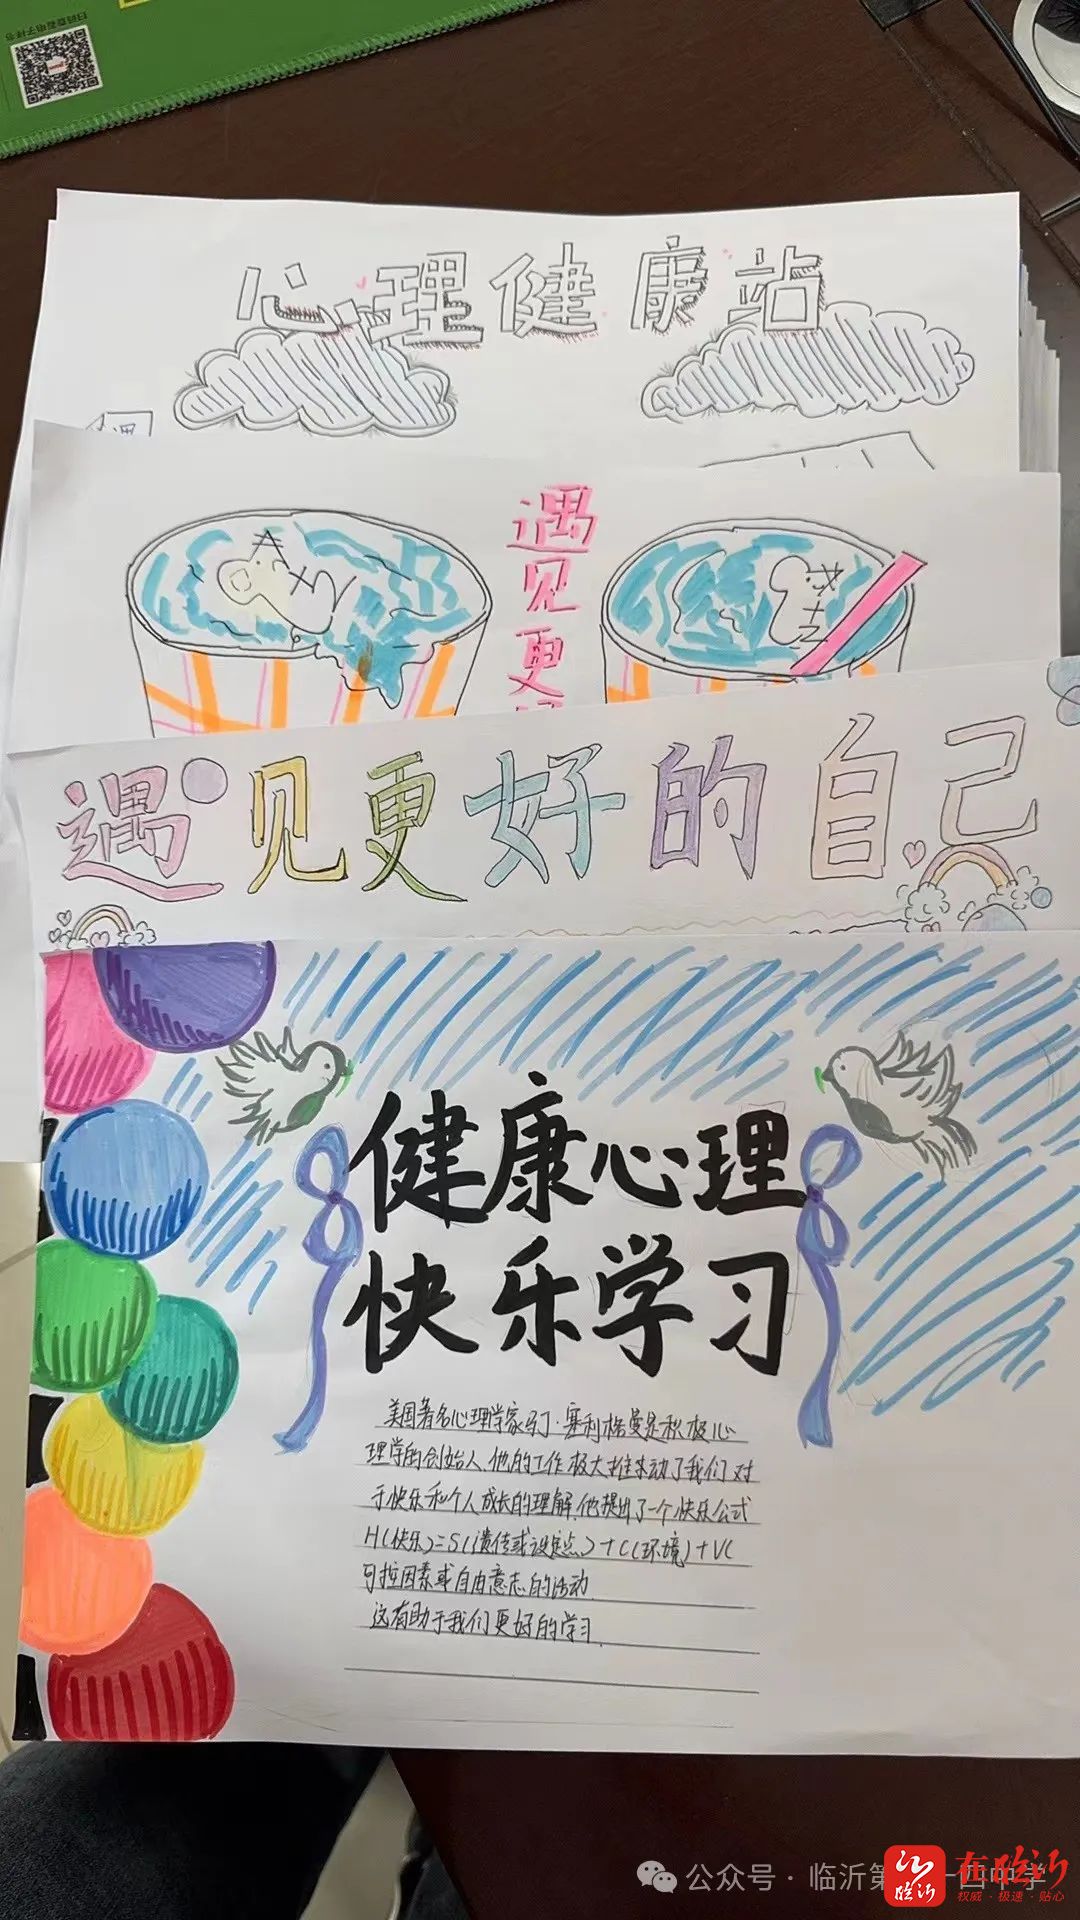 扫码查看电子样书
心理健康站
遇
遇见更
遇见更好的自己
健康心理
快乐学习
美国著名心理学家马丁·塞利格曼是积极心
理学的创始人,他的工作极大推动了我们对
于快乐和个人成长的理解.他提出了一个快乐公式
H(快乐)=S(遗传或设定点)+C(环境)+V(
可控因素或自由意志的活动
这有助于我们更好的学习.
公众号·临沂第 一四中学
临沂
在临沂
权威·极速·贴心